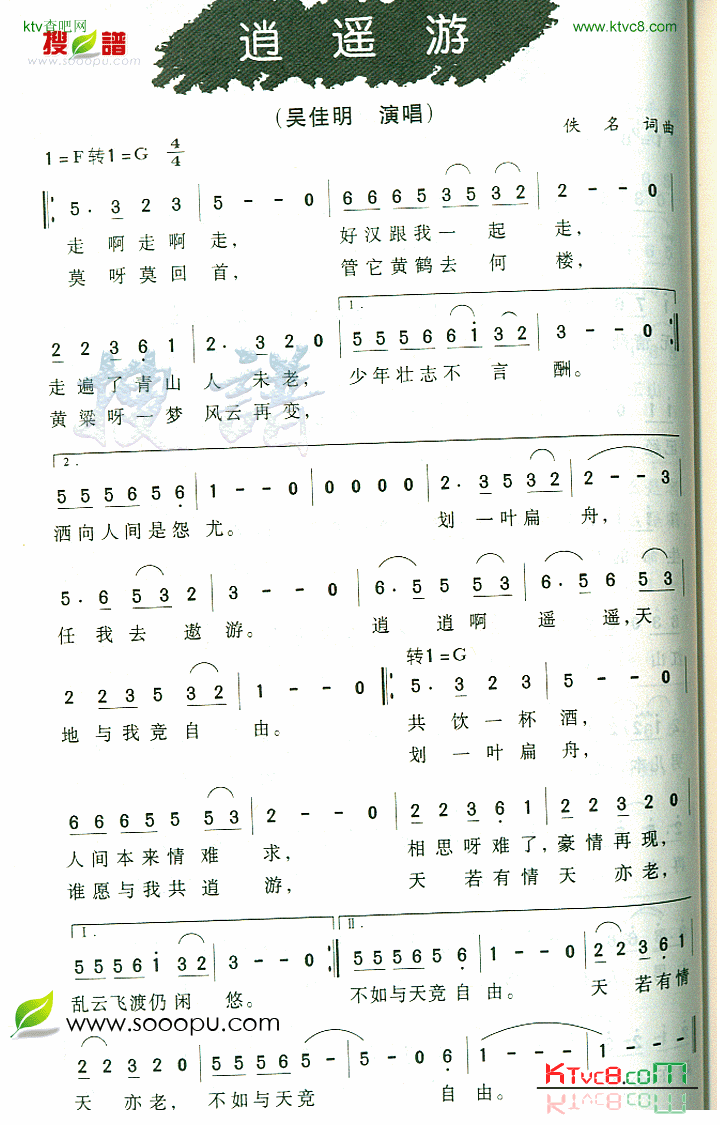 ktv杳吧网
www.ktvc8.com
搜譜
www.sooopu.com
逍遥游
(吴佳明 演唱)
佚 名 词曲
1=F转1=G 4/4
5· 3 2 3 | 5 - - 0 | 6 6 6 5 3 5 3 2 | 2 - - 0
走 啊走啊 走, 好汉跟我一 起 走,
莫 呀莫回 首, 管它黄鹤去 何 楼,
1.
2 2 3 6 1 | 2· 3 2 0 | 5 5 5 6 6 1 3 2 | 3 - - 0
走遍了青山 人 未老, 少年壮志不 言 酬。
黄粱呀一梦 风云再变,
2.
5 5 5 6 5 6 | 1 - - 0 | 0 0 0 0 | 2· 3 5 3 2 | 2 - - 3
洒向人间是怨 尤。 划 一叶扁 舟,
5· 6 5 3 2 | 3 - - 0 | 6· 5 5 5 3 | 6· 5 6 5 3
任我去 遨 游。 逍 逍啊 遥 遥,天
转1=G
2 2 3 5 3 2 | 1 - - 0 | 5· 3 2 3 | 5 - - 0
地与我竞自 由。 共饮一杯 酒,
划一叶扁 舟,
6 6 6 5 5 5 3 | 2 - - 0 | 2 2 3 6 1 | 2 2 3 2 0
人间本来情难 求, 相思呀难了,豪情再现,
谁愿与我共逍 游, 天 若有情天 亦老,
I.
II.
5 5 5 6 1 3 2 | 3 - - 0 | 5 5 5 6 5 6 | 1 - - 0 | 2 2 3 6 1
乱云飞渡仍闲 悠。 不如与天竞自由。 天 若有情
www.sooopu.com
2 2 3 2 0 | 5 5 5 6 5 5 - | 5 - 0 6 | 1 - - - | 1 - - 0
天 亦老, 不如与天竞 自由。
KTvc8.com